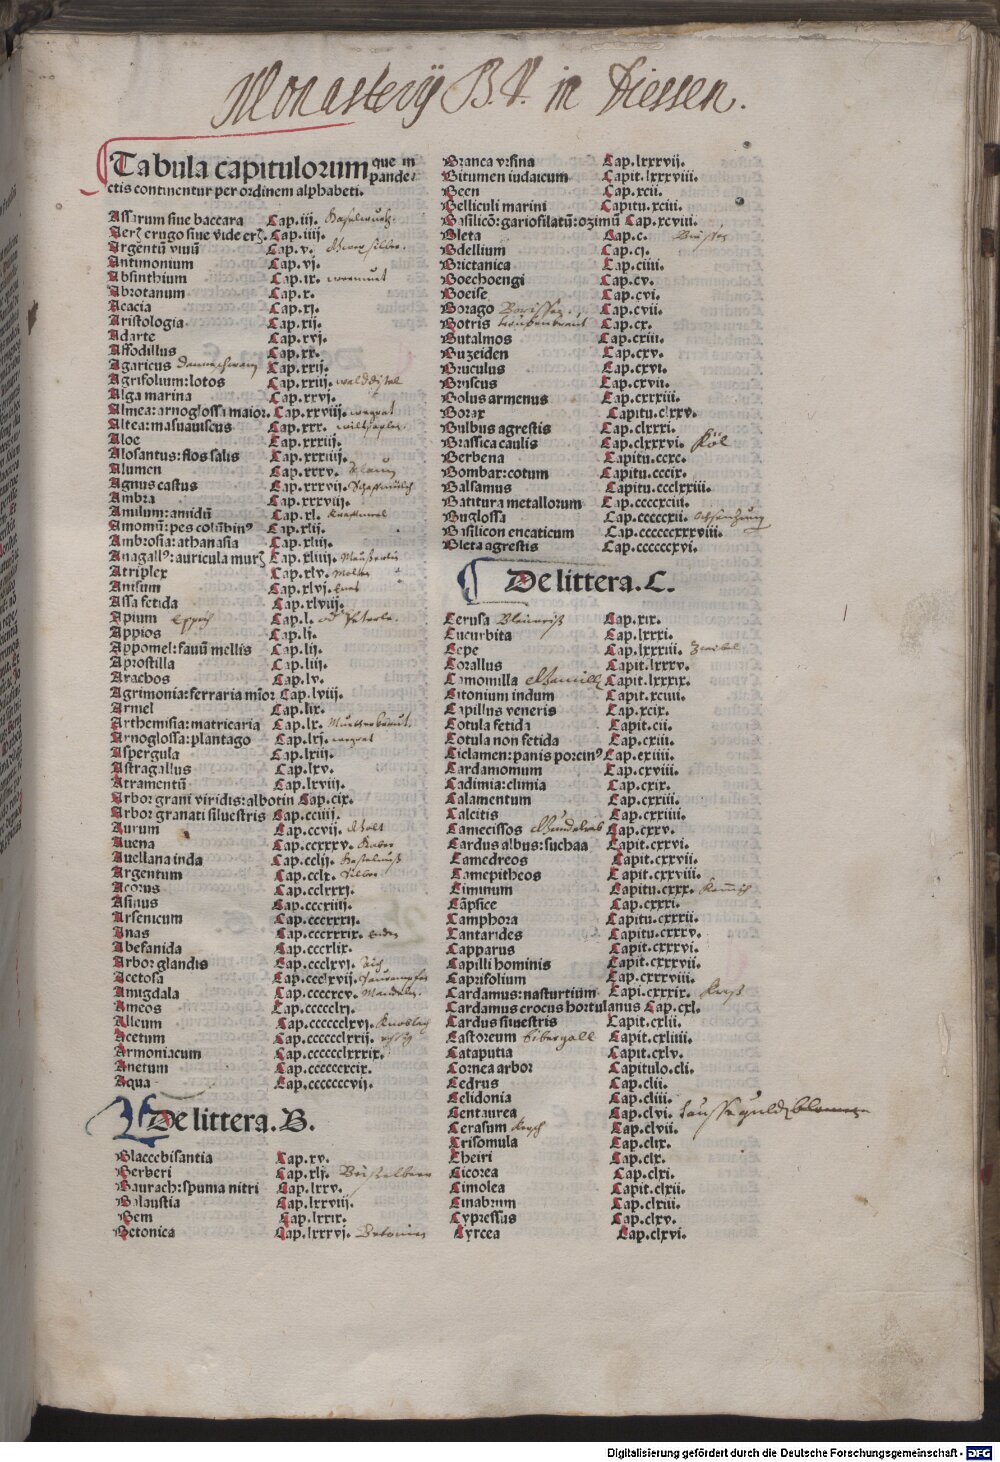 Monasterij B.V. in Diessen.
Tabula capitulorum que in pande-
ctis continentur per ordinem alphabeti.
Assarum siue baccara Cap.iij.
Aerʒ erugo siue vide erʒ. Cap.iiij.
Argentū viuū Cap.v.
Antimonium Cap.vj.
Absinthium Cap.ix. wermuet
Abrotanum Cap.x.
Acacia Cap.xj.
Aristologia Cap.xij.
Adarte Cap.xvj.
Affodillus Cap.xx.
Agaricus Cap.xxij.
Agrifolium:lotos Cap.xxiij.
Alga marina Cap.xxvj.
Almea:arnoglossa maior. Cap.xxviij.
Altea:masuauiscus Cap.xxx.
Aloe Cap.xxxiij.
Alosantus:flos salis Cap.xxxiiij.
Alumen Cap.xxxv.
Agnus castus Cap.xxxvij.
Ambra Cap.xxxviij.
Amilum:amidū Cap.xl.
Amomū:pes colūbinꝰ Cap.xlij.
Ambrosia:athanasia Cap.xliij.
Anagallꝰ:auricula murʒ Cap.xliiij.
Atriplex Cap.xlv.
Anisum Cap.xlvj.
Assa fetida Cap.xlviij.
Apium Cap.l.
Appios Cap.lj.
Appomel:fauū mellis Cap.lij.
Aprostilla Cap.liij.
Arachos Cap.lv.
Agrimonia:ferraria mīor Cap.lviij.
Armel Cap.lix.
Arthemisia:matricaria Cap.lx.
Arnoglossa:plantago Cap.lxj.
Aspergula Cap.lxiij.
Astragallus Cap.lxv.
Atramentū Cap.lxviij.
Arbor grani viridis:albotin Cap.cix.
Arbor granati siluestris Cap.cciiij.
Aurum Cap.ccvij.
Auena Cap.ccxxxv.
Auellana inda Cap.cclij.
Argentum Cap.cclx.
Acorus Cap.cclxxxj.
Asinus Cap.cccxiiij.
Arsenicum Cap.cccxxxij.
Anas Cap.cccxxxix.
Abefanida Cap.cccxlix.
Arbor glandis Cap.ccclxvj.
Acetosa Cap.cccclxvij.
Amigdala Cap.ccccxcv.
Ameos Cap.cccccclxj.
Alleum Cap.ccccccclxvj.
Acetum Cap.ccccccclxxij.
Armoniacum Cap.ccccccclxxxix.
Anetum Cap.ccccccxcix.
Aqua Cap.ccccccvij.
De littera.B.
Blaccebisantia Cap.xv.
Berberi Cap.xlj.
Baurach:spuma nitri Cap.lxxv.
Balaustia Cap.lxxviij.
Bem Cap.lxxix.
Betonica Cap.lxxxvj.
Branca vrsina Cap.lxxxvij.
Bitumen iudaicum Capit.lxxxviii.
Been Cap.xcii.
Belliculi marini Capitu.xciii.
Basilicō:gariofilatū:ozimū Cap.xcviii.
Bleta Cap.c.
Bdellium Cap.cj.
Brictanica Cap.ciiii.
Boechoengi Cap.cv.
Boeise Cap.cvi.
Borago Cap.cvii.
Botris Cap.cx.
Butalmos Cap.cxiii.
Buzeiden Cap.cxv.
Bruculus Cap.cxvi.
Bruscus Cap.cxvii.
Bolus armenus Cap.cxxxiii.
Borax Capitu.clxxv.
Bulbus agrestis Cap.clxxxi.
Brassica caulis Cap.clxxxvi.
Berbena Capitu.ccxc.
Bombax:cotum Capitu.cccix.
Balsamus Capitu.ccclxxiii.
Batitura metallorum Cap.ccccxciii.
Buglossa Cap.cccccxii.
Basilicon encaticum Cap.ccccccxxxviii.
Bleta agrestis Cap.ccccccxvi.
De littera.C.
Cerusa Cap.xix.
Cucurbita Cap.lxxxi.
Cepe Cap.lxxxiii.
Corallus Capit.lxxxv.
Camomilla Capit.lxxxix.
Citonium indum Capit.xciiii.
Capillus veneris Cap.xcix.
Cotula fetida Capit.cii.
Cotula non fetida Cap.cxiii.
Ciclamen:panis porcinꝰ Cap.cxiiii.
Cardamomum Cap.cxviii.
Cadimia:climia Cap.cxix.
Calamentum Cap.cxxiii.
Calcitis Cap.cxxiiii.
Camecissos Cap.cxxv.
Cardus albus:suchaa Capit.cxxvi.
Camedreos Capit.cxxvii.
Camepitheos Capit.cxxviii.
Ciminum Capitu.cxxx.
Cāpsice Cap.cxxxi.
Camphora Capitu.cxxxii.
Cantarides Capitu.cxxxv.
Capparus Capit.cxxxvi.
Capilli hominis Capit.cxxxvii.
Caprifolium Cap.cxxxviii.
Cardamus:nasturtium Capi.cxxxix.
Cardamus crocus hortulanus Cap.cxl.
Cardus siluestris Capit.cxlii.
Castoreum bibergall Capit.cxliiii.
Cataputia Capit.cxlv.
Cornea arbor Capitulo.cli.
Cedrus Cap.clii.
Celidonia Cap.cliii.
Centaurea Cap.clvi.
Cerasum Cap.clvii.
Crisomula Cap.clix.
Cheiri Cap.clx.
Cicorea Cap.clxi.
Cimolea Capit.clxii.
Cinabrum Cap.clxiii.
Cypressus Cap.clxv.
Cyrcea Cap.clxvi.
Digitalisierung gefördert durch die Deutsche Forschungsgemeinschaft - DFG